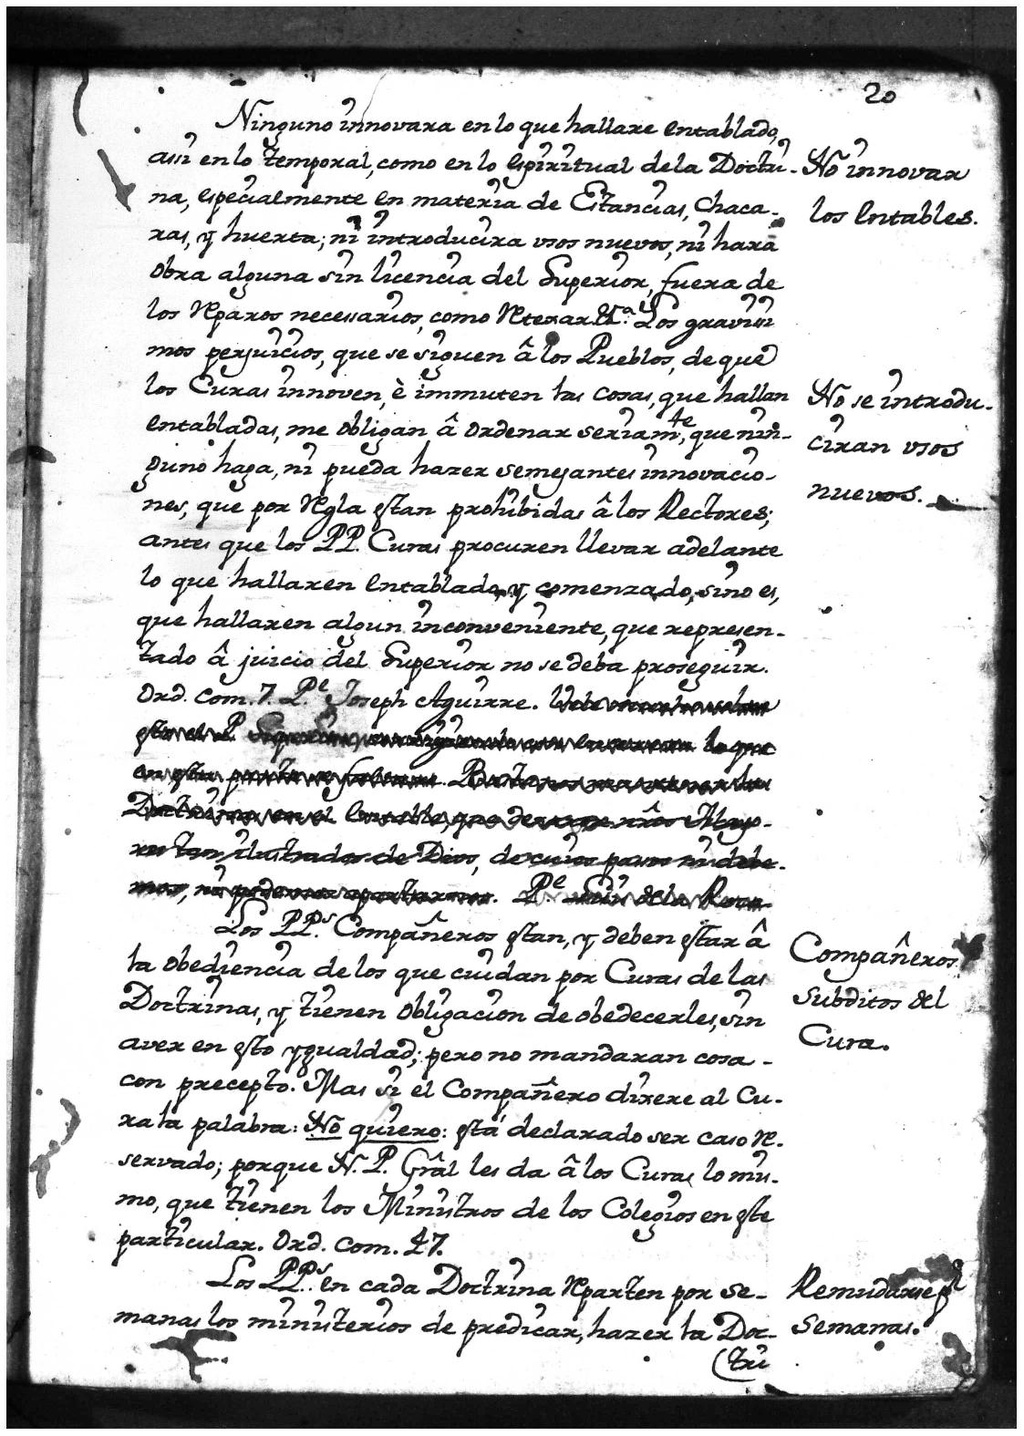 20
Ninguno innovara en lo que hallare entablado,
assi en lo temporal, como en lo espiritual de la Doctri-
na, especialmente en materia de Estancias, Chaca-
ras, y huerta; ni introducira usos nuevos, ni hará
obra alguna sin licencia del Superior, fuera de
los Rparos necessarios, como Rtexar &a. Los gravisi
mos perjuicios, que se siguen â los Pueblos, de que
los Curas innoven, è immuten las cosas, que hallan
entabladas, me obligan â ordenar seriamte, que nin-
guno haga, ni pueda hazer semejantes innovacio-
nes, que por Rgla estan prohibidas â los Rectores;
antes que los PP. Curas procuren llevar adelante
lo que hallaren entablado, y comenzado, sino es,
que hallaren algun inconveniente, que represen-
tado â juicio del Superior no se deba proseguir.
Ord. Com. 7. Pe. Joseph Aguirre.
esto el P. lo que
en esta parte
Doctrinas en el nrôs Mayo-
res tan ilustrados de Dios, de cuios passos ni debe-
mos, ni podemos apartarnos. Pe. Luis de la Roca
Los PPs. Compañeros estan, y deben estar â
la obediencia de los que cuidan por Curas de las
Doctrinas, y tienen obligacion de obedecerles, sin
aver en esto ygualdad; pero no mandaran cosa
con precepto. Mas si el Compañero dixere al Cu-
ra la palabra: No quiero: está declarado ser caso R-
servado; porque N. P. Grâl les da â los Curas lo mis-
mo, que tienen los Ministros de los Colegios en este
particular. Ord. Com. 47.
Los PPs. en cada Doctrina Rparten por se-
manas los ministerios de predicar, hazer la Doc-
(tri
No innovar
los entables.
No se introdu-
ciran usos
nuevos.
Compañeros
subditos del
Cura.
Remudarse pr
semanas.